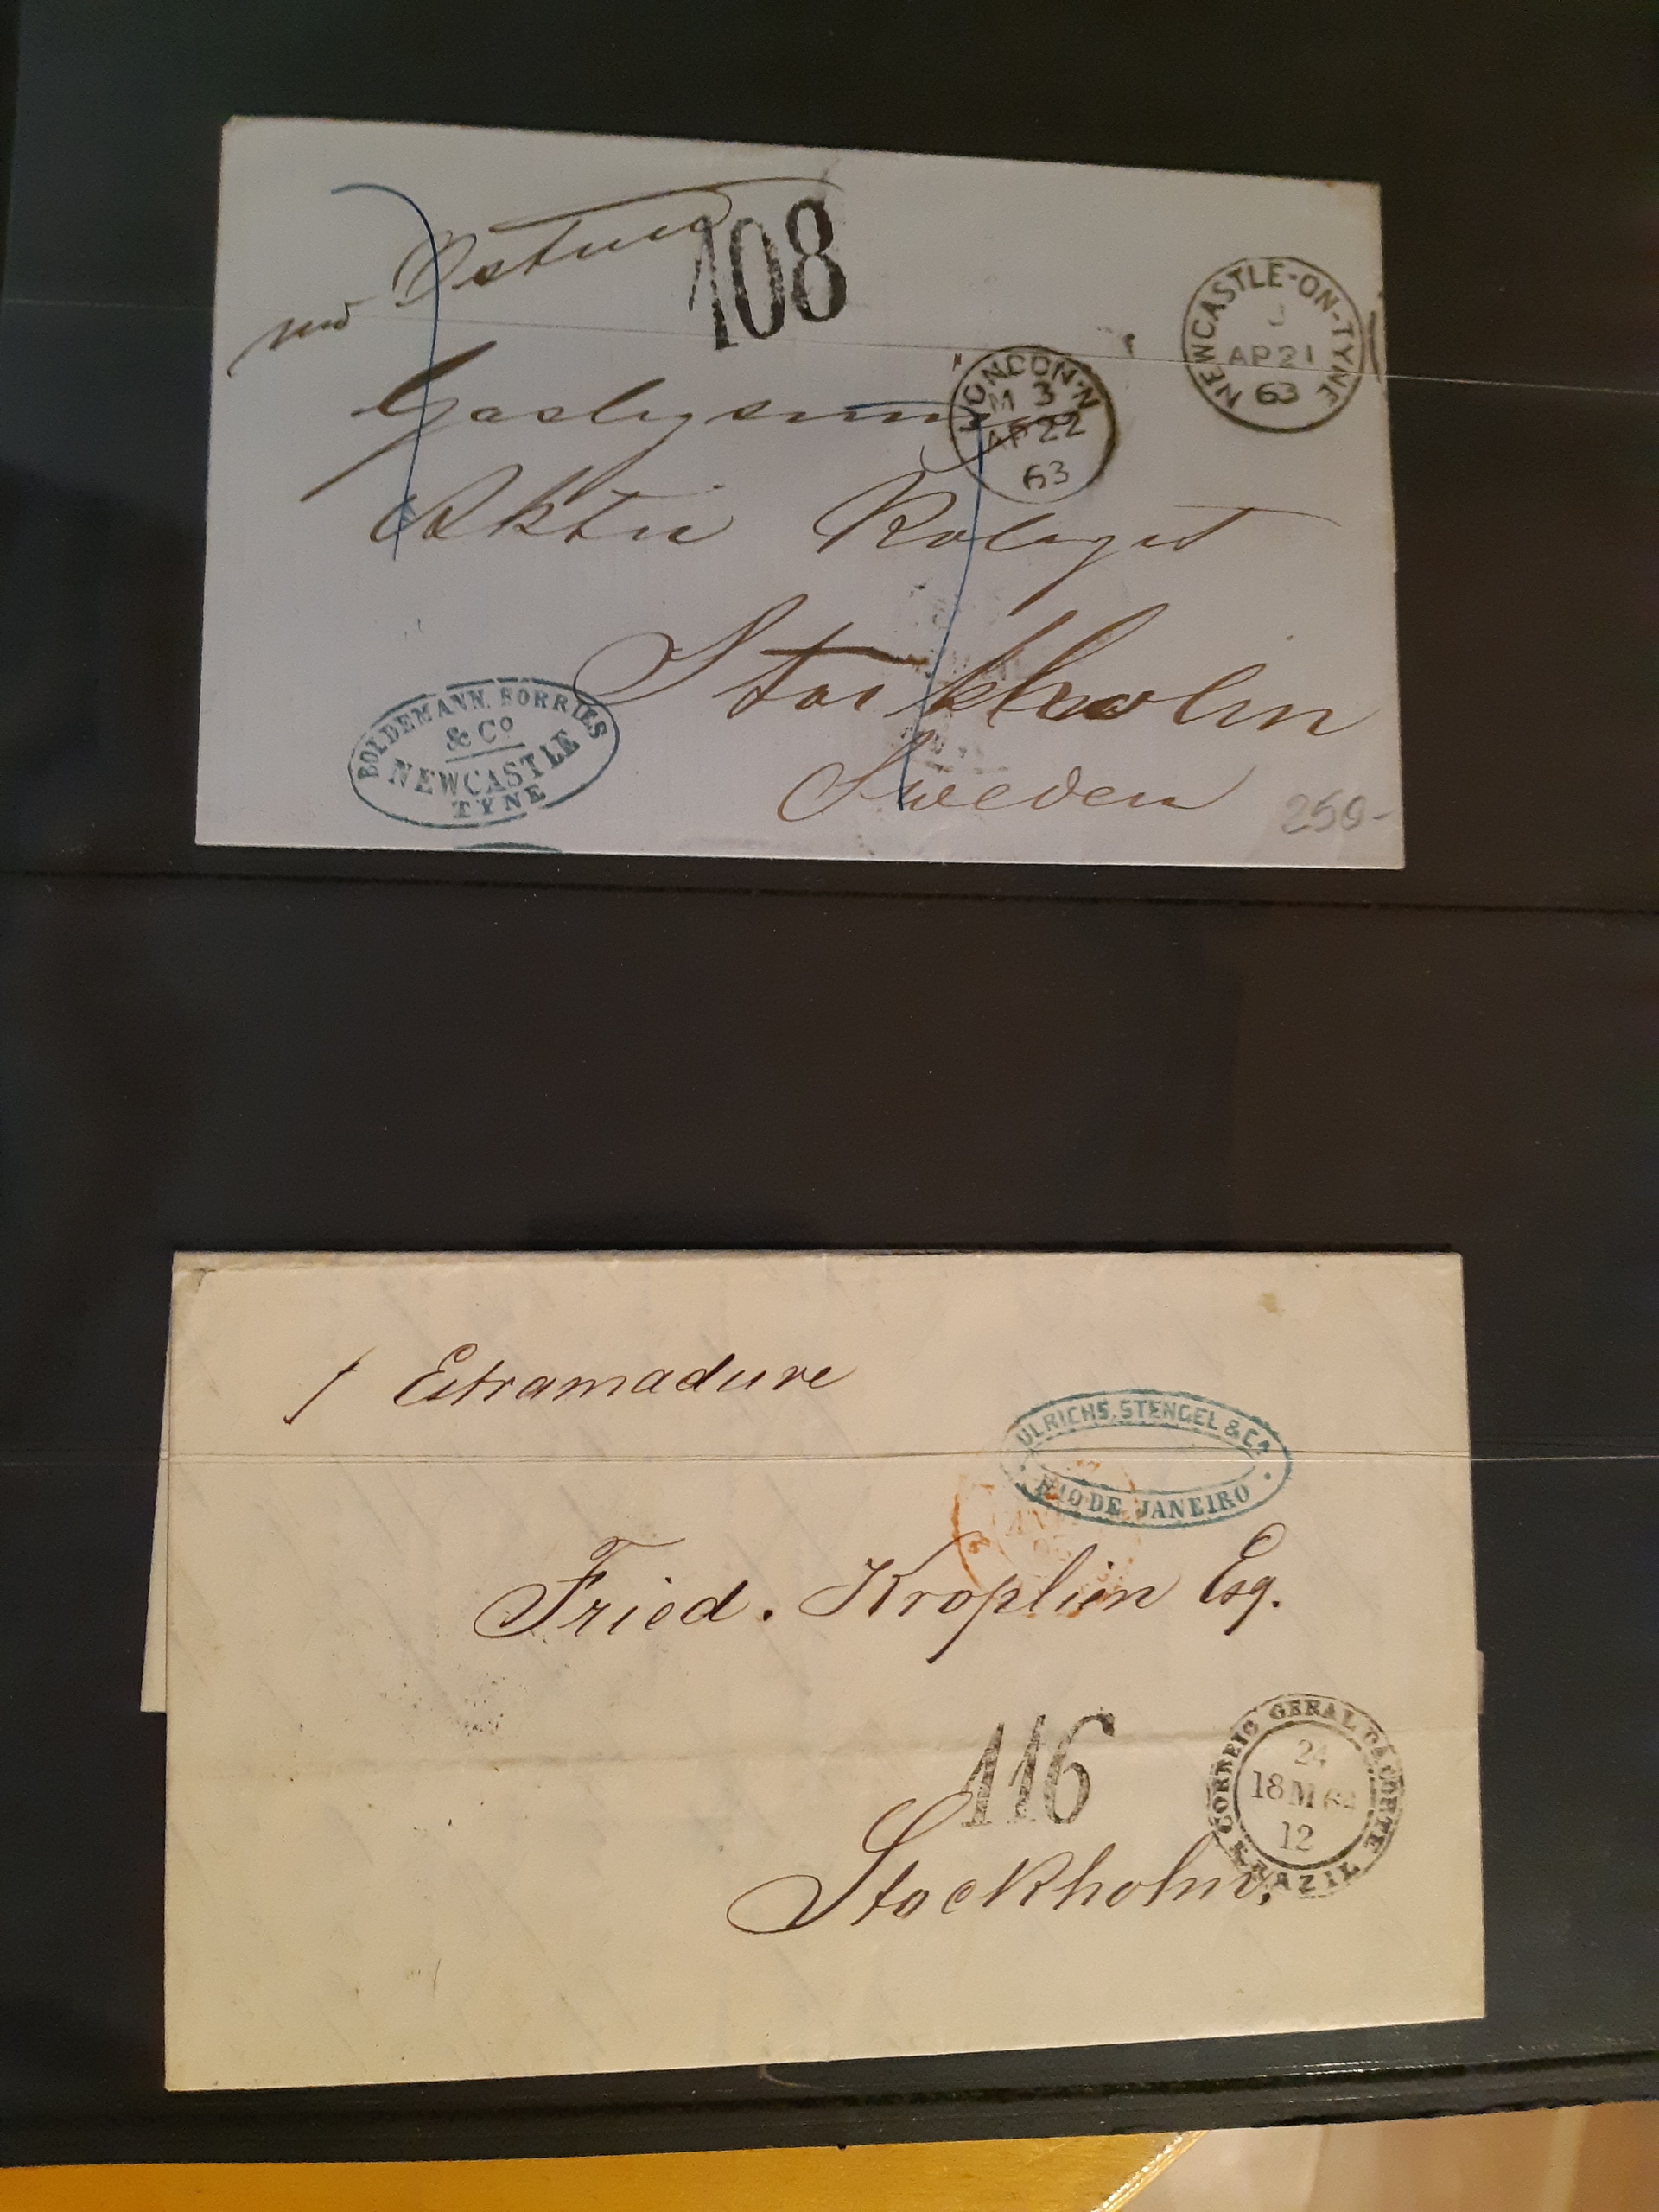 via Ostend
108
NEWCASTLE-ON-TYNE
AP 21
63
LONDON-N
M 3
AP 22
63
Aktie Bolaget
Stockholm
Sweden
BOLDEMANN, BORRIES
& Co
NEWCASTLE
TYNE
250-
p Estramadure
ULRICHS, STENGEL & Co
RIO DE JANEIRO
Fried. Kroplien Esq.
116
CORREIO GERAL DA CORTE
24
18 M 6
12
BRAZIL
Stockholm,